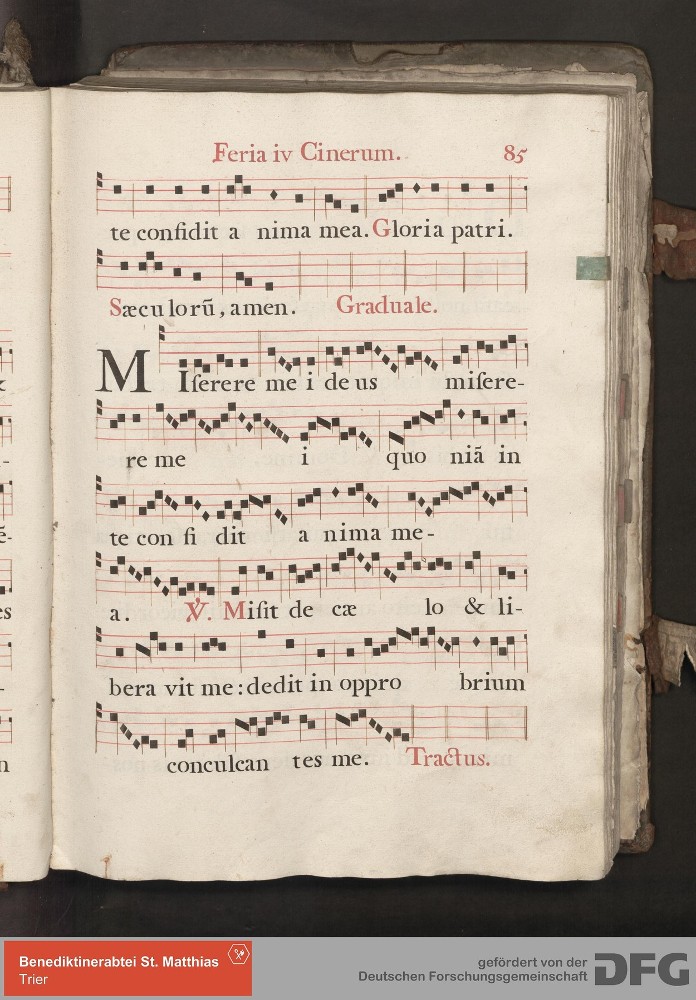 Feria iv Cinerum. 85
te confidit a nima mea. Gloria patri.
Sæcu lorũ, amen. Graduale.
MIſerere me i de us miſere-
re me i quo niã in
te con fi dit a nima me-
a. ℣. Miſit de cæ lo & li-
bera vit me: dedit in oppro brium
conculcan tes me. Tractus.
Benediktinerabtei St. Matthias
Trier
gefördert von der
Deutschen Forschungsgemeinschaft
DFG